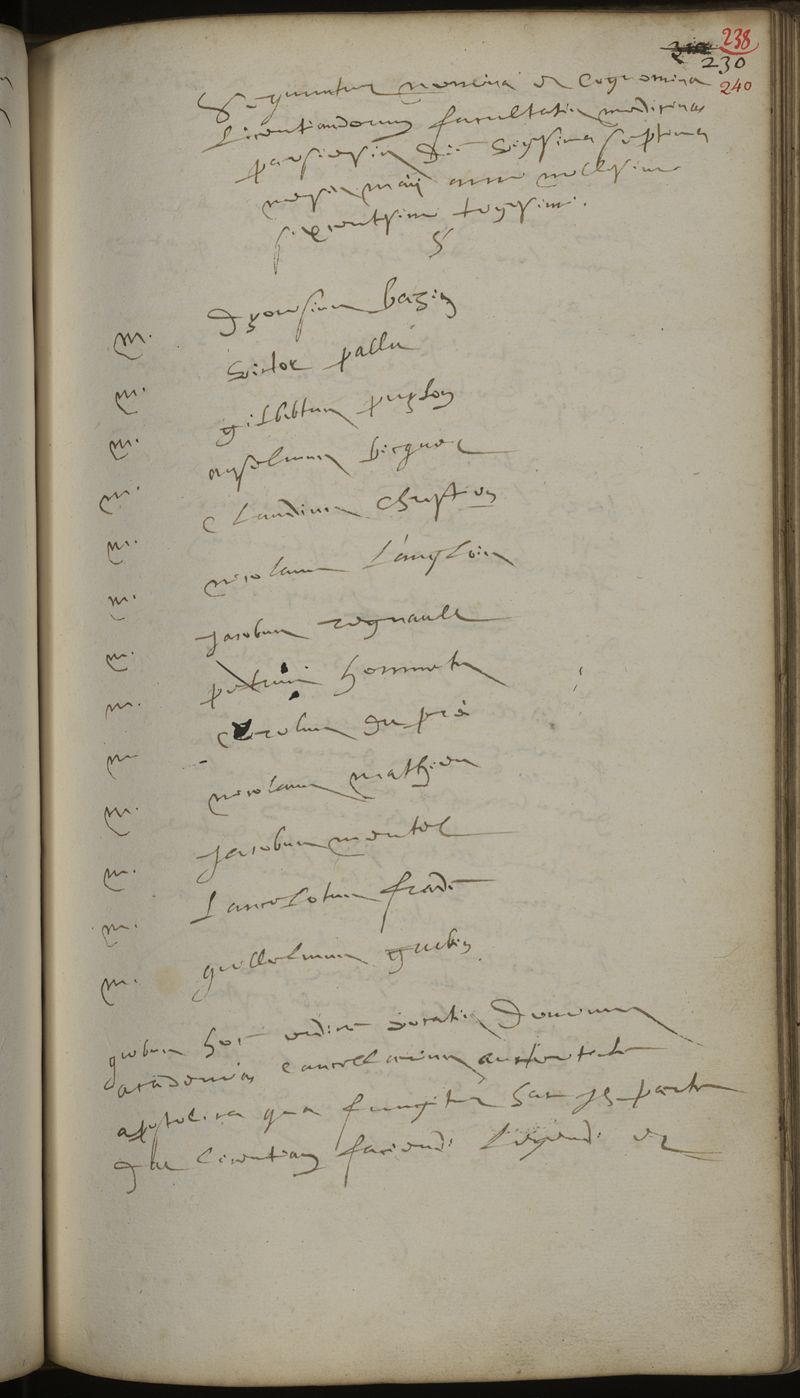 238
230
240
Sequuntur nomina et cognomina
Licentiandorum facultatis medicinae
parisiensis Die vigesima septima
mensis maij anno millesimo
sexcentesimo trigesimo.
m. Dyonisium bazin
m. Victor pallu
m. gilbertum puylon
m. anselmum bicquet
m. Claudium
m. nicolaum Langlois
m. Jacobum regnault
m. petrum hommets
m. Carolum du pré
m. nicolaum mathieu
m. Jacobum mentel
m. Lancelotum
m. guillelmum
quibus hoc ordine vocatis Dominus
academiae Cancellarius authoritate
apostolica qua fungitur hac in parte
Dat licentiam faciendi Legendi et